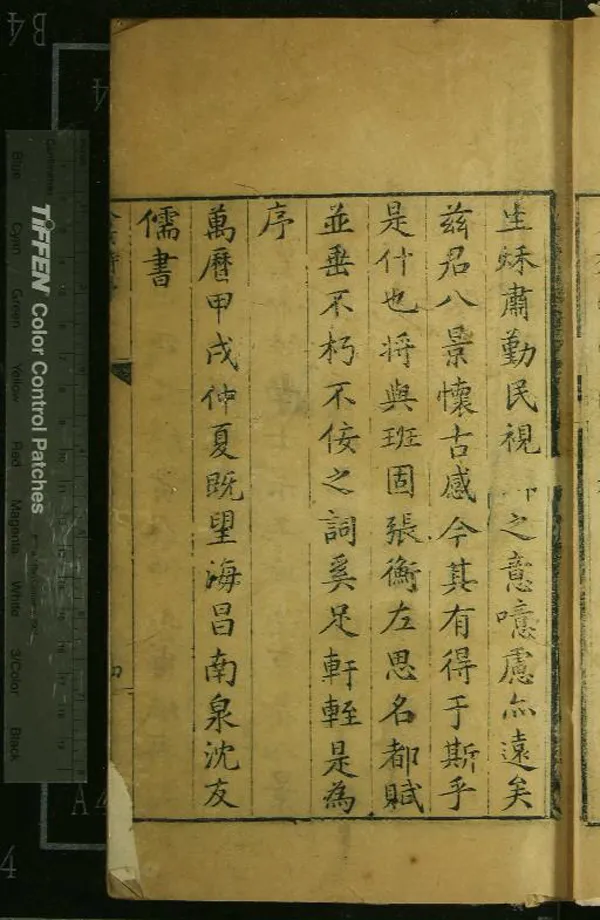 生穌肅勤民視 之意噫慮亦遠矣
茲君八景懷古感今其有得于斯乎
是什也將與班固張衡左思名都賦
並垂不朽不佞之詞奚足軒輊是為
序
萬曆甲戌仲夏既望海昌南泉沈友
儒書
TIFFEN Color Control Patches
Blue Cyan Green Yellow Red Magenta White 3/Color Black
B4
A4